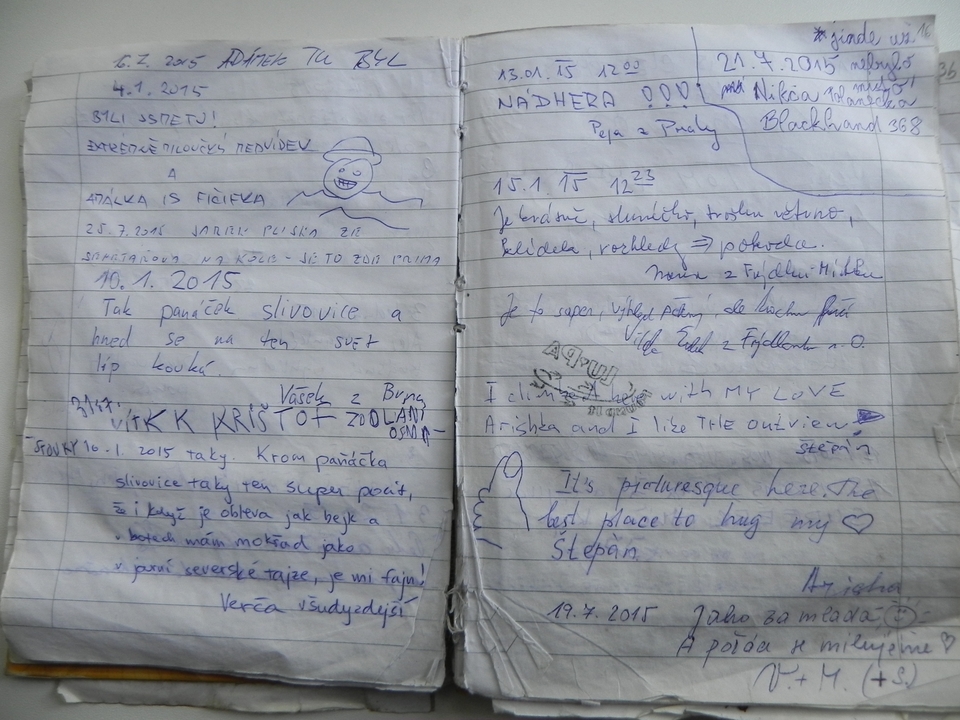 6.2. 2015 ADÁMEK TU BYL
4.1. 2015
BYLI JSME TU!
MEDVÍDEK
A
ADÁLKA IS FIČIFKA
25.7.2015
NA KOLE - JE TO ZDE PRIMA
10.1. 2015
Tak panáček slivovice a
hned se na ten svět
líp kouká.
Vašek z Brna
VÍTKK KRIŠTOF
16.1. 2015 taky. Krom panáčka
slivovice taky ten super pocit,
i když je obleva jak bejk a
v botech mám mokřad jako
v jarní severské tajze, je mi fajn!
Verča všudyzdejší
13.01.15 12 00
NÁDHERA !!!
Peja z Prahy
*jinde už
21.7.2015 nebylo
místo!
Nikča
Blackhand 368
15.1. 15 12 23
Je krásně, sluníčko, trošku větrno,
rozhledy => pohoda.
z Frýdku-Místku
Je to super, výhled pěkný, ale trochu
z Frýdlantu n. O.
I climbed here with MY LOVE
Arishka and I like THE outview!
Štěpán
It's picturesque here. The
best place to hug my ♡
Štěpán
Arisha
19.7.2015 Jako za mlada
A pořád se milujeme ♡
V. + M. (+ S.)